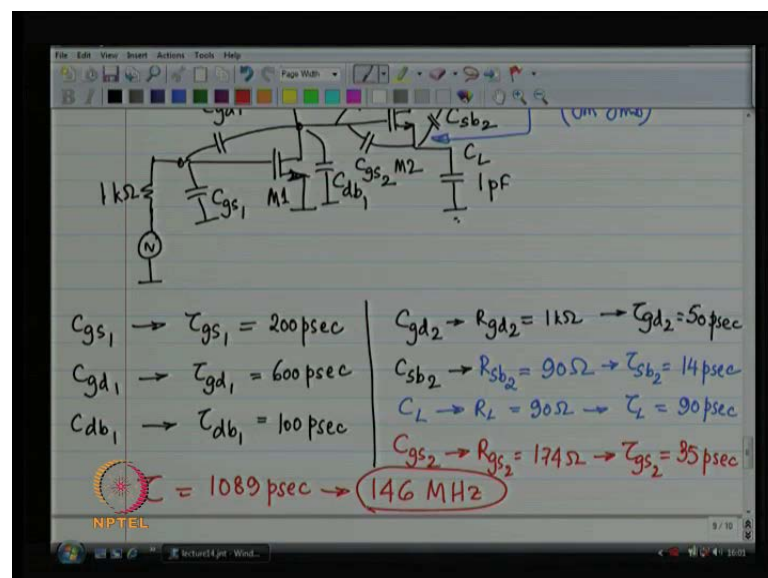 File Edit View Insert Actions Tools Help
Page Width
B I
Cgd1
Csb2
(gm gmb)
1kΩ
Cgs1
M1
Cdb1
Cgs2
M2
CL
1pf
N
Cgs1 → τgs1 = 200psec
Cgd1 → τgd1 = 600psec
Cdb1 → τdb1 = 100psec
Cgd2 → Rgd2 = 1kΩ → τgd2 = 50psec
Csb2 → Rsb2 = 90Ω → τsb2 = 14psec
CL → RL = 90Ω → τL = 90psec
Cgs2 → Rgs2 = 174Ω → τgs2 = 35psec
τ = 1089psec → 146 MHz
NPTEL
9 / 10
lecture14.jnt - Wind...
16:01